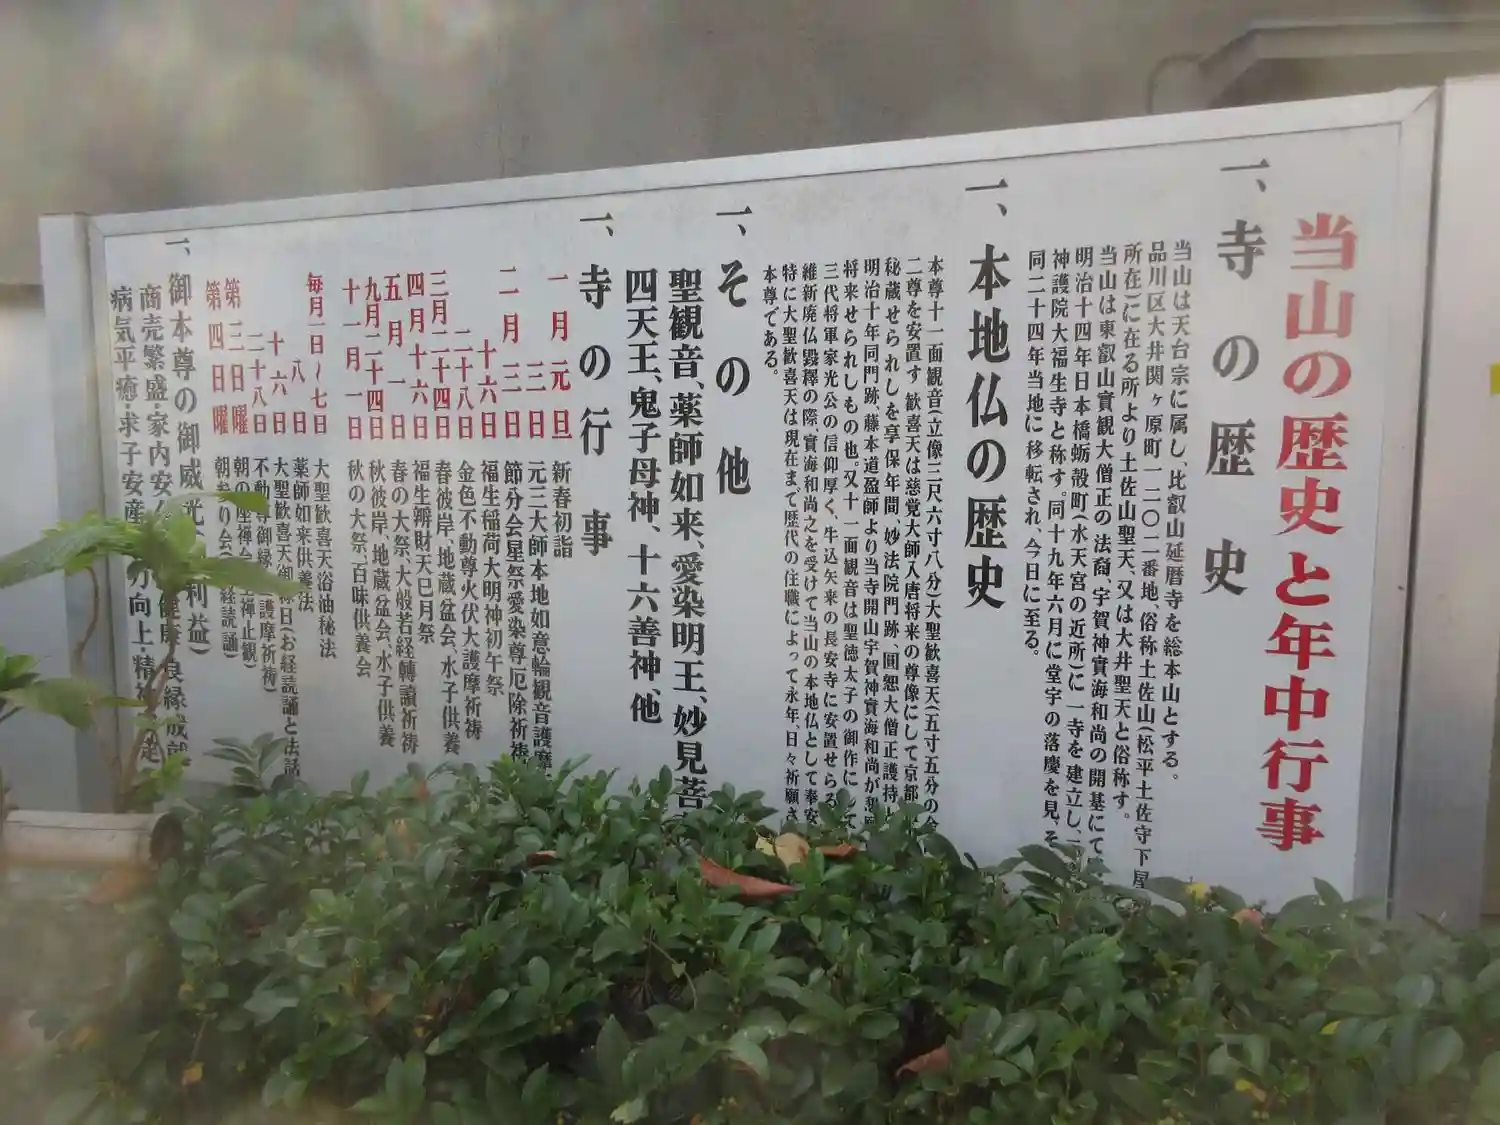 当山の歴史と年中行事
一、寺の歴史
当山は天台宗に属し、比叡山延暦寺を総本山とする。
品川区大井関ヶ原町一二〇二番地、俗称土佐山(松平土佐守下屋
所在)に在る所より土佐山聖天、又は大井聖天と俗称す。
当山は東叡山實観大僧正の法裔、宇賀神實海和尚の開基にて
明治十四年日本橋蛎殻町(水天宮の近所)に一寺を建立し、
神護院大福生寺と称す。同十九年六月に堂宇の落慶を見、そ
同二十四年当地に移転され、今日に至る。
一、本地仏の歴史
本尊十一面観音(立像三尺六寸八分)大聖歓喜天(五寸五分の金
二尊を安置す 歓喜天は慈覚大師入唐将来の尊像にして京都
秘蔵せられしを享保年間、妙法院門跡 圓恕大僧正護持
明治十年同門跡、藤本道盈師より当寺開山宇賀神實海和尚が
将来せられしもの也。又十一面観音は聖徳太子の御作にして
三代将軍家光公の信仰厚く、牛込矢来の長安寺に安置せらる
維新廃仏毀釋の際、實海和尚之を受けて当山の本地仏として奉安
特に大聖歓喜天は現在まで歴代の住職によって永年、日々祈願さ
本尊である。
一、その他
聖観音、薬師如来、愛染明王、妙見菩
四天王、鬼子母神、十六善神、他
一、寺の行事
一月元旦 新春初詣
三日 元三大師本地如意輪観音護摩
二月三日 節分会星祭愛染尊厄除祈祷
十六日 福生稲荷大明神初午祭
二十八日 金色不動尊火伏大護摩祈祷
三月二十四日 春彼岸、地蔵盆会、水子供養
四月十六日 福生辧財天巳月祭
五月一日 春の大祭、大般若経轉讀祈祷
九月二十四日 秋彼岸、地蔵盆会、水子供養
十一月一日 秋の大祭、百味供養会
毎月一日～七日 大聖歓喜天浴油秘法
八日 薬師如来供養法
十六日 大聖歓喜天御縁日(お経読誦と法話
二十八日 不動尊御縁 護摩祈祷)
第三日曜 朝の座禅会 禅止観)
第四日曜 朝参り会 経読誦)
一、御本尊の御威光 利益)
商売繁盛・家内安 健康・良縁成就
病気平癒・求子安産 力向上・精神